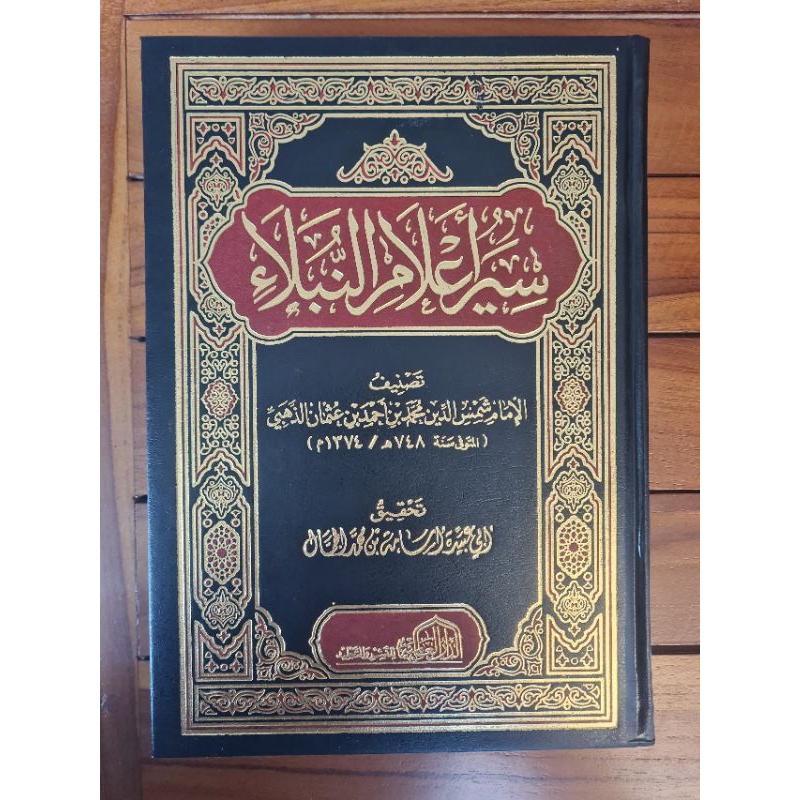 سِيَرُ أَعْلَامِ النُّبَلَاءِ
تَصْنِيفُ
الإِمَامِ شَمْسِ الدِّينِ مُحَمَّدِ بْنِ أَحْمَدَ بْنِ عُثْمَانَ الذَّهَبِيِّ
( المتوفى سَنَة ٧٤٨ هـ / ١٣٧٤ م )
تَحْقِيقُ
أبي عبيدة أسامة بن محمد الجمال
الدار العالمية للنشر والتجليد